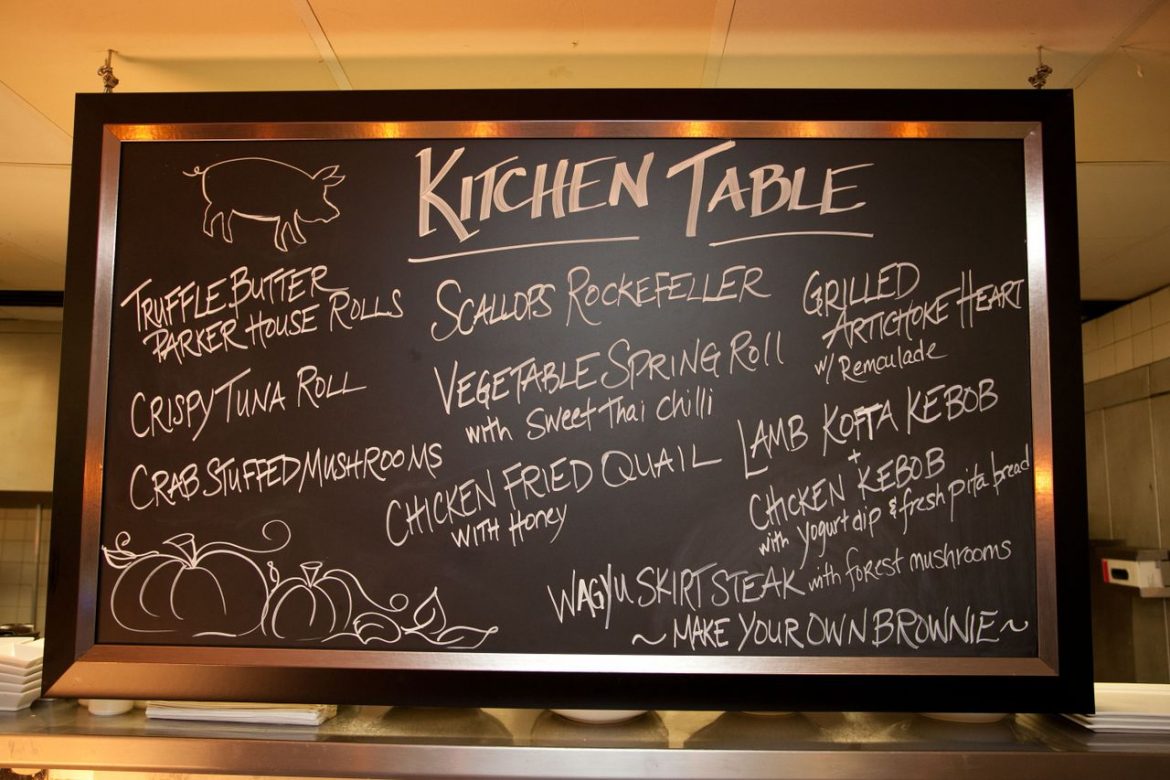 KITCHEN TABLE
TRUFFLE BUTTER
PARKER HOUSE ROLLS
CRISPY TUNA ROLL
CRAB STUFFED MUSHROOMS
SCALLOPS ROCKEFELLER
VEGETABLE SPRING ROLL
with Sweet Thai Chilli
CHICKEN FRIED QUAIL
WITH HONEY
GRILLED
ARTICHOKE HEART
w/ Remoulade
LAMB KOFTA KEBOB
+
CHICKEN KEBOB
with yogurt dip & fresh pita bread
WAGYU SKIRT STEAK with forest mushrooms
~ MAKE YOUR OWN BROWNIE ~